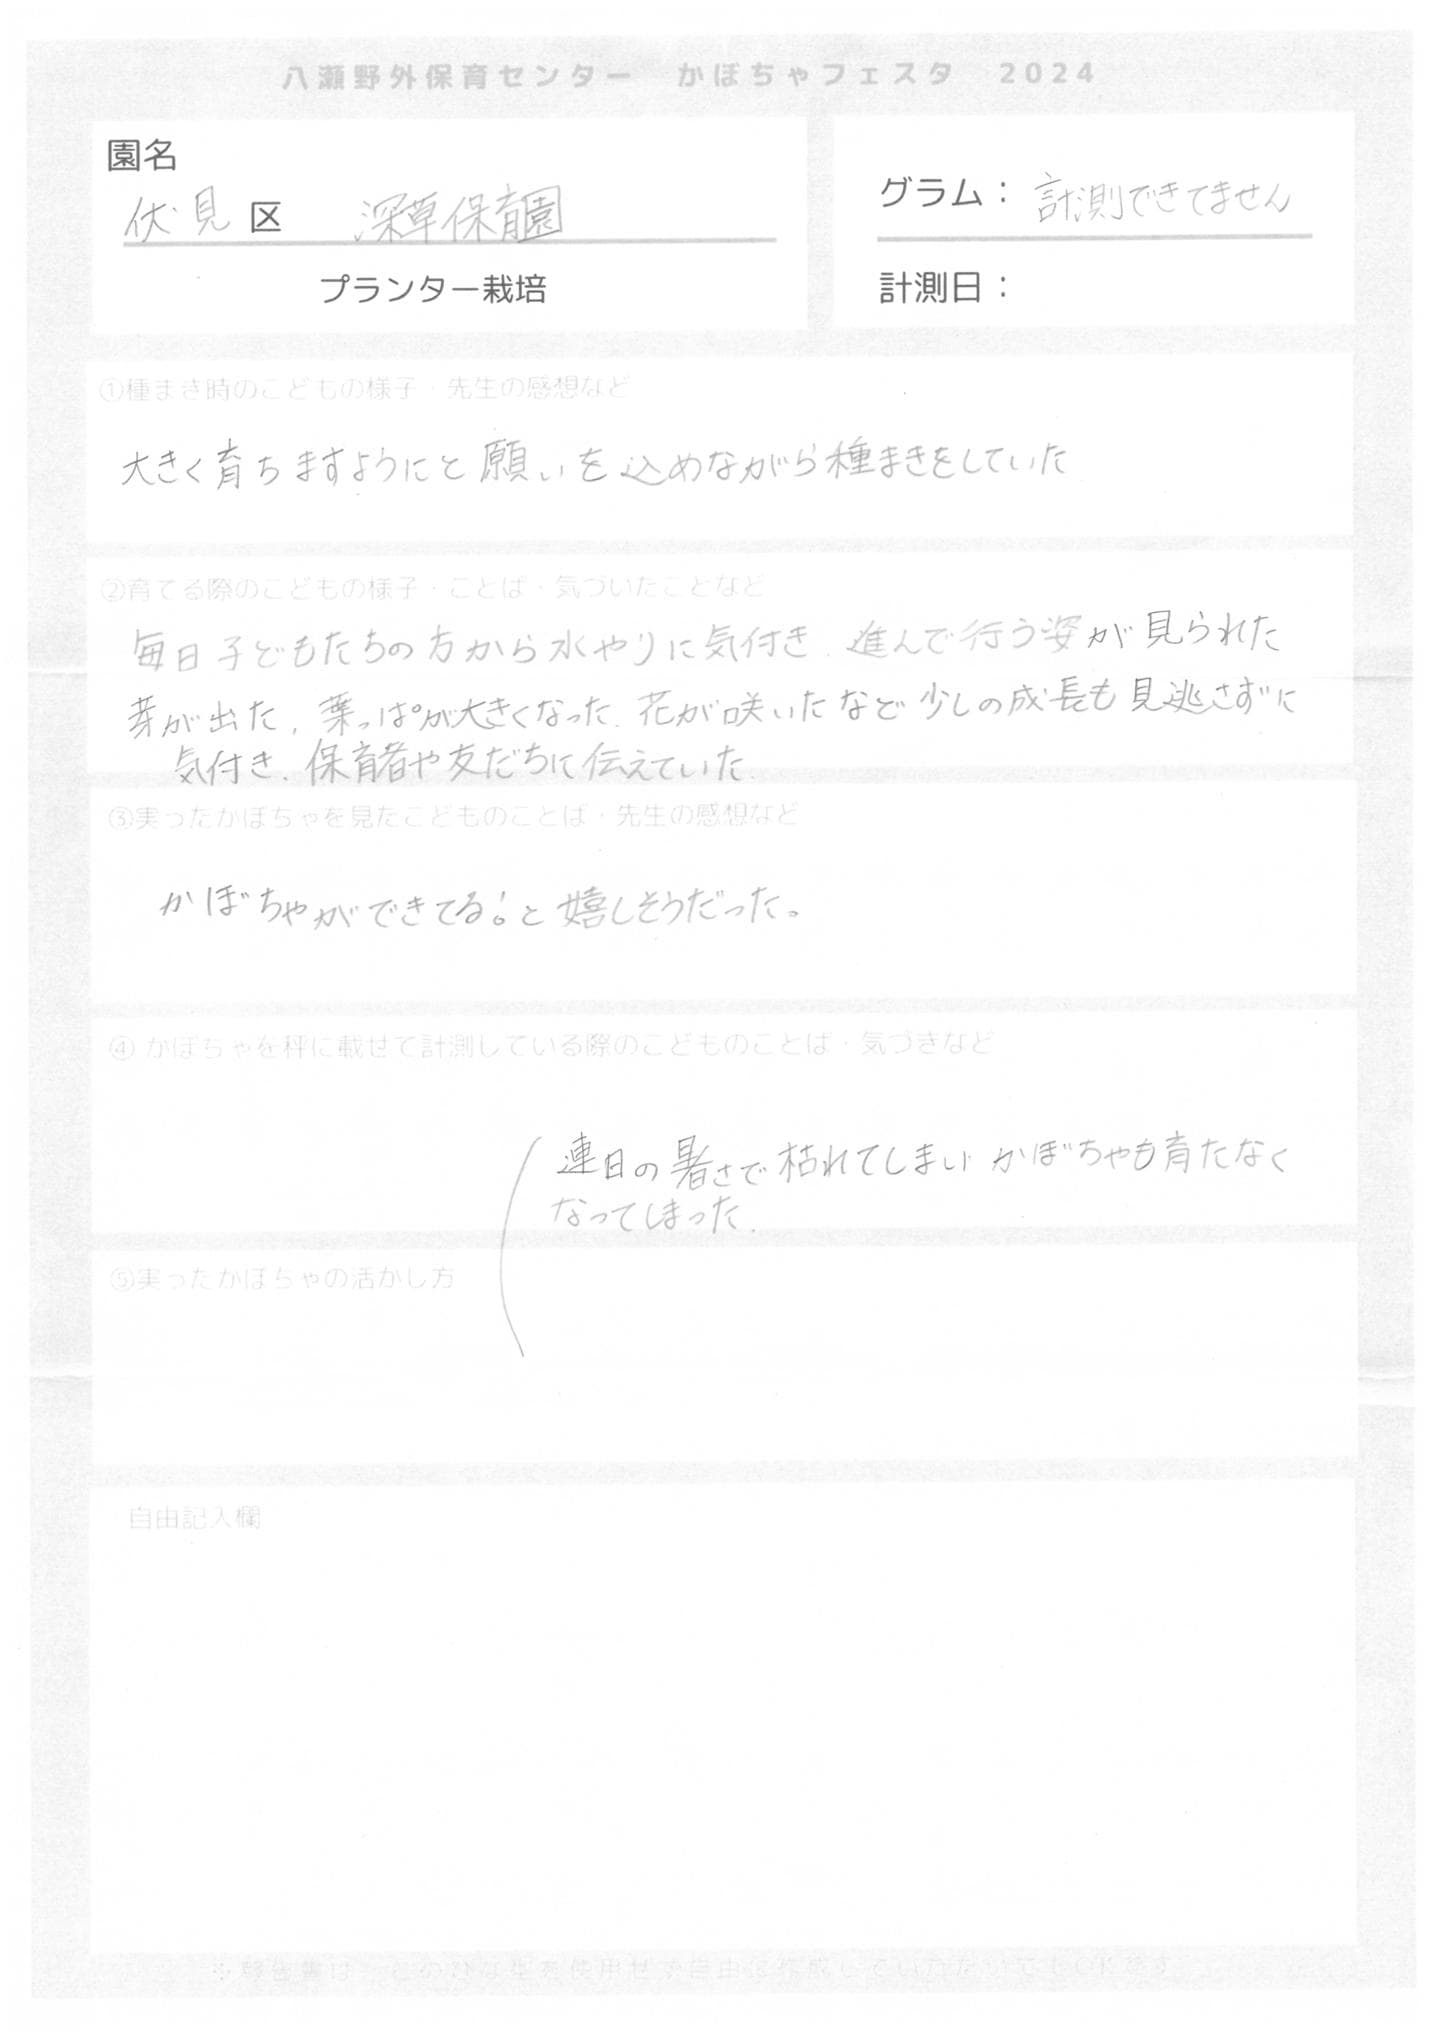 八瀬野外保育センター　かぼちゃフェスタ　2024
園名
伏見区　深草保育園
プランター栽培
グラム：計測できてません
計測日：
①種まき時のこどもの様子・先生の感想など
大きく育ちますようにと願いを込めながら種まきをしていた
②育てる際のこどもの様子・ことば・気づいたことなど
毎日子どもたちの方から水やりに気付き、進んで行う姿が見られた
芽が出た、葉っぱが大きくなった、花が咲いたなど少しの成長も見逃さずに
気付き、保育者や友だちに伝えていた。
③実ったかぼちゃを見たこどものことば・先生の感想など
かぼちゃができてる！と嬉しそうだった。
④ かぼちゃを秤に載せて計測している際のこどものことば・気づきなど
連日の暑さで枯れてしまい かぼちゃも育たなく
なってしまった。
⑤実ったかぼちゃの活かし方
自由記入欄